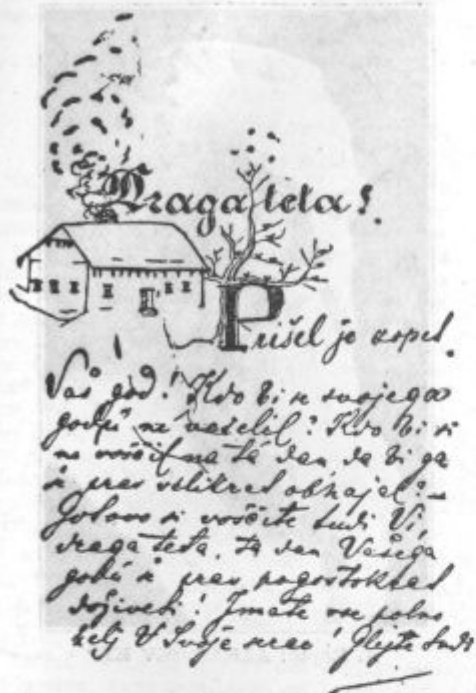 Draga teta!
Prišel je zopet
Vaš god! Kdo bi se svojega
godu ne veselil? Kdo bi si
ne voščil na ta dan, da bi ga
še prav velikrat obhajal? –
Gotovo si voščite tudi Vi,
draga teta, ta dan Vašega
godu še prav pogostokrat
doživeti! Imate vse polno
želj v Svoje srce! Glejte tudi